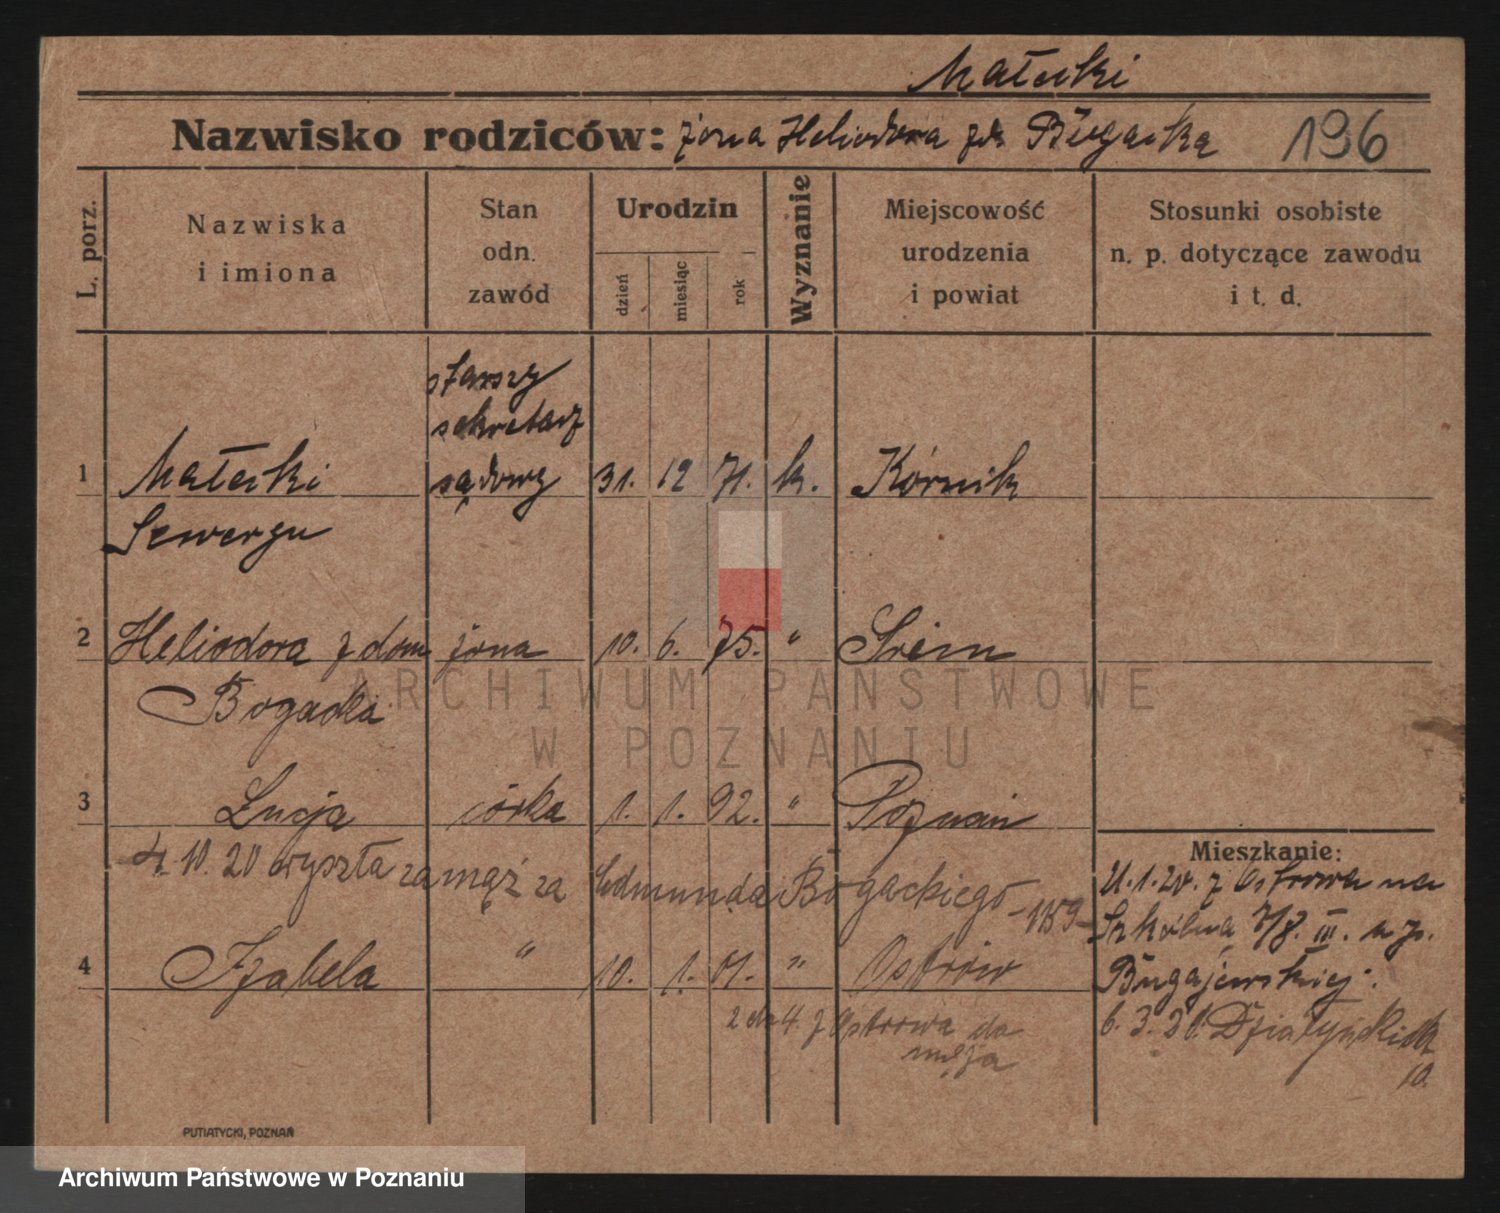 Małecki
Nazwisko rodziców: żona Heliodora zd. Bogacka 196
L. porz.
Nazwiska i imiona
Stan odn. zawód
Urodzin
dzień miesiąc rok
Wyznanie
Miejscowość urodzenia i powiat
Stosunki osobiste n. p. dotyczące zawodu i t. d.
starszy
sekretarz
1 Małecki sądowy 31. 12 71. k. Kórnik
Seweryn
2 Heliodora z dom żona 10. 6. 75. " Śrem
Bogacka
3 Łucja córka 1. 1. 92. " Poznań
4. 10. 20 wyszła zamąż za Edmunda Bogackiego -1159-
4 Izabela " 10. 1. 01. " Ostrów
2 do 4 z Ostrowa do
męża
Mieszkanie:
21.1.20. z Ostrowa na
Szkólna 7/8. III. u p.
Bugajewskiej.
6. 3. 20 Działyńskich
10.
PUTIATYCKI, POZNAŃ
ARCHIWUM PAŃSTWOWE
W POZNANIU
Archiwum Państwowe w Poznaniu